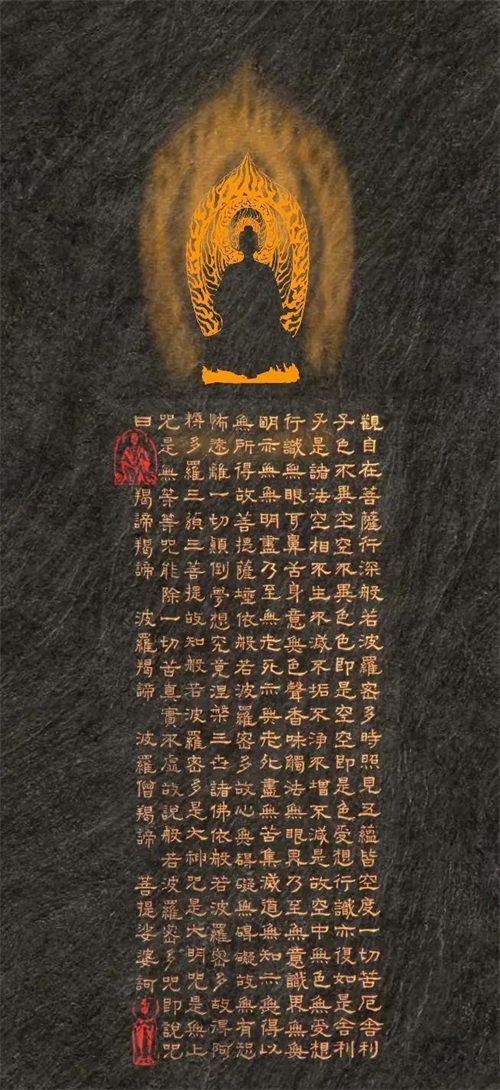 觀自在菩薩行深般若波羅密多時照見五蘊皆空度一切苦厄舍利
子色不異空空不異色色即是空空即是色愛想行識亦復如是舍利
子是諸法空相不生不滅不垢不淨不增不減是故空中無色無愛想
行識無眼耳鼻舌身意無色聲香味觸法無眼界乃至無意識界無無
明亦無無明盡乃至無老死亦無老死盡無苦集滅道無知亦無得以
無所得故菩提薩埵依般若波羅密多故心無碍礙無碍礙故無有恐
怖遠離一切顛倒夢想究竟涅槃三世諸佛依般若波羅密多故得阿
耨多羅三藐三菩提故知般若波羅密多是大神咒是大明咒是無上
咒是無等等咒能除一切苦真實不虛故說般若波羅密多咒即說咒
曰 羯諦羯諦 波羅羯諦 波羅僧羯諦 菩提娑婆訶